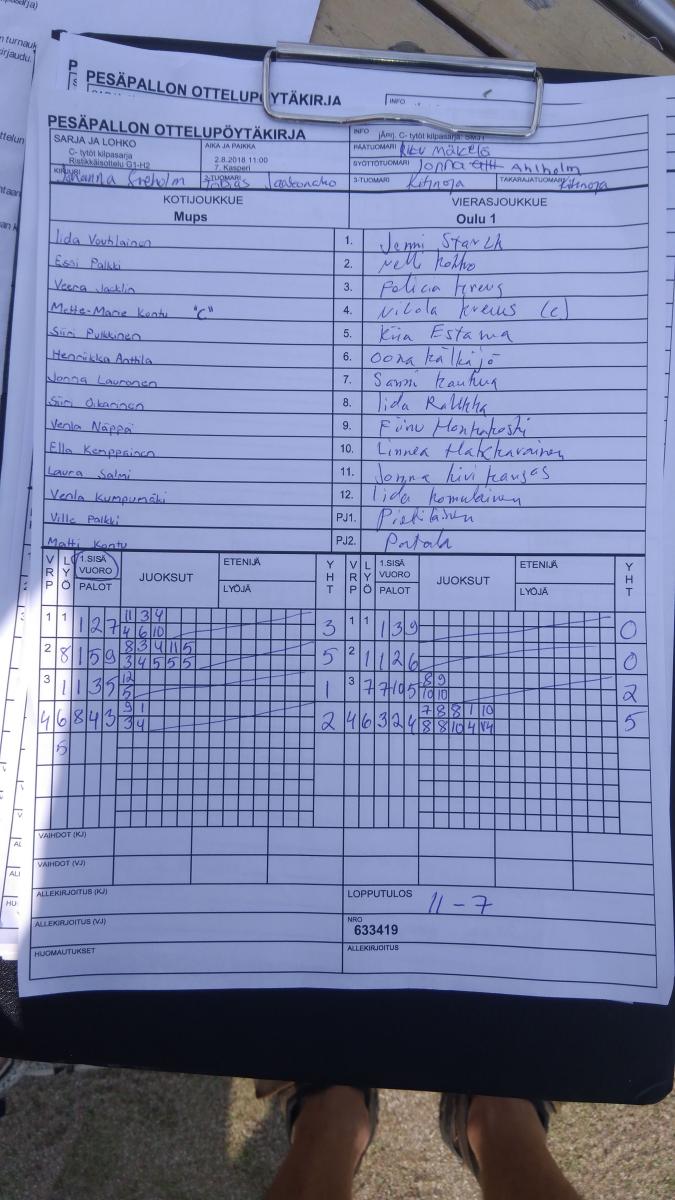 PESÄPALLON OTTELUPÖYTÄKIRJA
INFO
PESÄPALLON OTTELUPÖYTÄKIRJA
SARJA JA LOHKO
C- tytöt kilpasarja
Ristikkäisottelu G1-H2
AIKA JA PAIKKA
2.8.2018 11:00
7. Kasperi
INFO
C- tytöt kilpasarja
PÄÄTUOMARI Riku Mäkelä
SYÖTTÖTUOMARI Jonna Ahlholm
KIRJURI
2-TUOMARI Tobias
3-TUOMARI Kitinoja
TAKARAJATUOMARI Kitinoja
KOTIJOUKKUE VIERASJOUKKUE
Mups Oulu 1
Iida Voutilainen 1. Jenni Starck
Essi Palkki 2. Nelli
Veera Jacklin 3.
Mette-Marie Kontu "C" 4. Nikola (C)
Siiri Pulkkinen 5. Kiia Estama
Henriikka Anttila 6. Oona Kälkäjä
Jonna Lauronen 7. Sanni
Siiri Oikarinen 8. Iida
Venla Näppä 9. Honkakoski
Ella Kemppainen 10. Linnea
Laura Salmi 11. Jonna Kivikangas
Venla Kumpumäki 12. Iida Komulainen
Ville Palkki PJ1. Pietiläinen
Matti Kontu PJ2. Portala
VRP LYÖ 1.SISÄ VUORO PALOT JUOKSUT ETENIJÄ LYÖJÄ YHT VRP LYÖ 1.SISÄ VUORO PALOT JUOKSUT ETENIJÄ LYÖJÄ YHT
11 3 4
1 1 1 2 7 4 6 10 3 1 1 1 3 9 0
8 3 4 11 5
2 8 1 5 9 3 4 5 5 5 5 2 1 1 2 6 0
12 8 9
3 1 1 3 5 5 1 3 7 7 10 5 10 10 2
9 1 7 8 8 1 10
4 6 8 4 3 3 4 2 4 6 3 2 4 8 8 10 4 5
5
VAIHDOT (KJ)
VAIHDOT (VJ)
ALLEKIRJOITUS (KJ) LOPPUTULOS 11-7
ALLEKIRJOITUS (VJ) NRO
633419
HUOMAUTUKSET ALLEKIRJOITUS